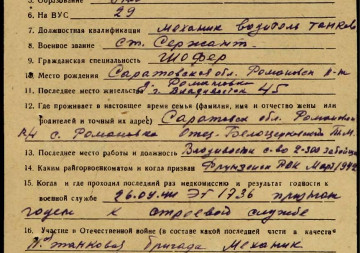 6. На ВУС 29
7. Должностная квалификация механик водитель танков
8. Военное звание Ст. Сержант.
9. Гражданская специальность шофер
10. Место рождения Саратовская обл. Романовск р-н
11. Последнее место жительства Владивосток 45
12. Где проживает в настоящее время семья (фамилия, имя и отчество жены или
родителей и точный их адрес) Саратовск обл. Романовск
с. Романовка Отец-
13. Последнее место работы и должность Владивосток
14. Каким райгорвоенкоматом и когда призван Фрунзенск РВК Март 1942
15. Когда и где проходил последний раз медкомиссию и результат годности к
военной службе 26.04.44 ЭГ 1736 признан
годен к строевой службе
16. Участие в Отечественной войне (в составе какой последней части и в качестве
танковая бригада механик